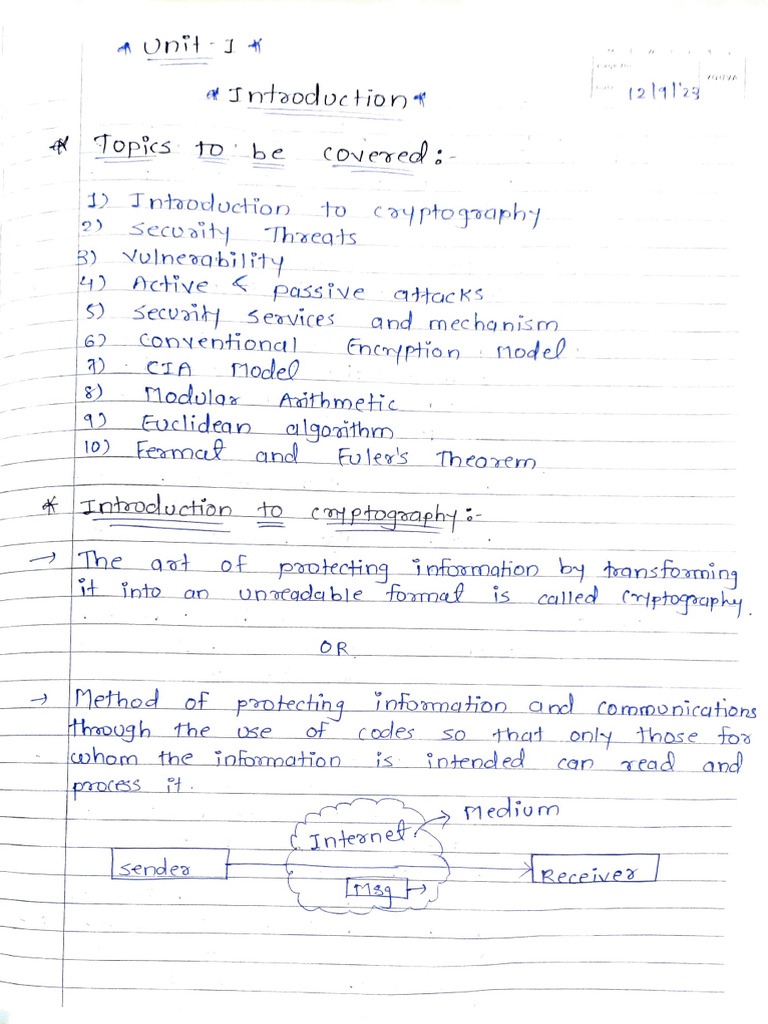 * Unit - I *
12/9/23
* Introduction *
* Topics to be covered :-
1) Introduction to cryptography
2) Security Threats
3) Vulnerability
4) Active & passive attacks
5) Security services and mechanism
6) Conventional Encryption Model
7) CIA Model
8) Modular Arithmetic
9) Euclidean algorithm
10) Fermat and Euler's Theorem
* Introduction to cryptography :-
→ The art of protecting information by transforming
it into an unreadable format is called Cryptography.
OR
→ Method of protecting information and communications
through the use of codes so that only those for
whom the information is intended can read and
process it.
Medium
Internet
Sender
Receiver
Msg